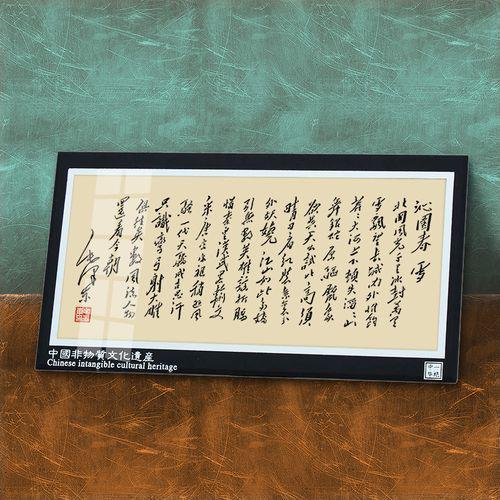 沁園春 雪
北國風光千里冰封萬里
雪飄望長城内外惟餘
莽莽大河上下頓失滔滔山
舞銀蛇原驅臘象
欲與天公試比高須
晴日看紅裝素裹
分外妖嬈江山如此多嬌
引無數英雄競折腰
惜秦皇漢武略輸文
采唐宗宋祖稍遜風
騷一代天驕成吉思汗
只識彎弓射大雕
俱往矣數風流人物
還看今朝
毛澤東
中國非物質文化遺産
Chinese intangible cultural heritage